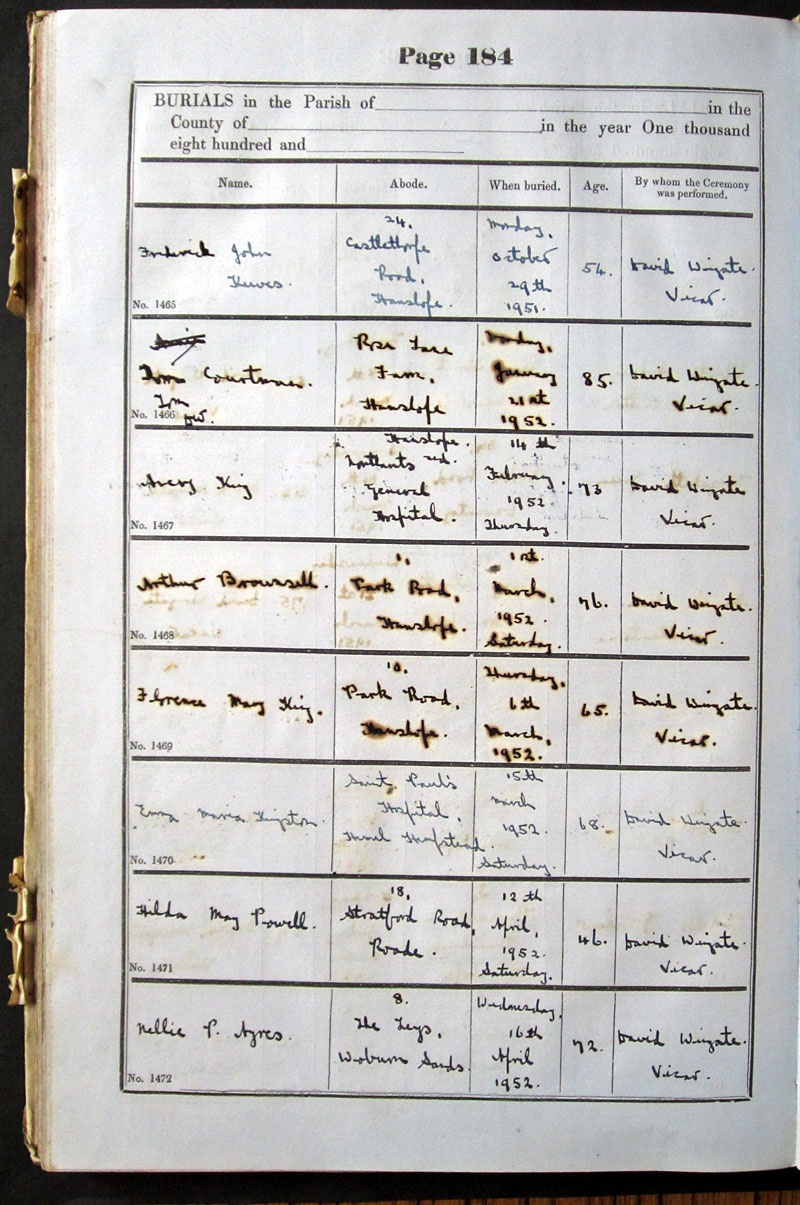 Page 184
BURIALS in the Parish of in the
County of in the year One thousand
eight hundred and
Name. Abode. When buried. Age. By whom the Ceremony was performed.
Frederick John
24.
Castlethorpe
Road,
Hanslope.
Monday,
October
29th
1951.
54.
David Wingate.
Vicar.
No. 1465
Tom Courtman.
Tom
DW.
Rose Lane
Farm,
Hanslope
Monday,
January
21st
1952.
85.
David Wingate.
Vicar.
No. 1466
Avery King
Hanslope.
Northants
General
Hospital.
14th
February,
1952.
Thursday.
73
David Wingate
Vicar.
No. 1467
Arthur Brownsell.
1,
Park Road,
Hanslope.
1st.
March,
1952.
Saturday.
76.
David Wingate.
Vicar.
No. 1468
Florence May King.
10.
Park Road,
Hanslope.
Thursday,
6th
March,
1952.
65.
David Wingate.
Vicar.
No. 1469
Emma Maria Kingston.
Saint Paul's
Hospital,
Hemel Hempstead.
15th
March
1952.
Saturday.
68.
David Wingate.
Vicar.
No. 1470
Hilda May Powell.
18,
Stratford Road,
Roade.
12th
April,
1952.
Saturday.
46.
David Wingate.
Vicar.
No. 1471
Nellie P. Ayres.
8.
The Leys,
Woburn Sands.
Wednesday,
16th
April
1952.
72.
David Wingate.
Vicar.
No. 1472